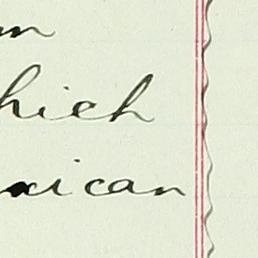 m
hich
xican